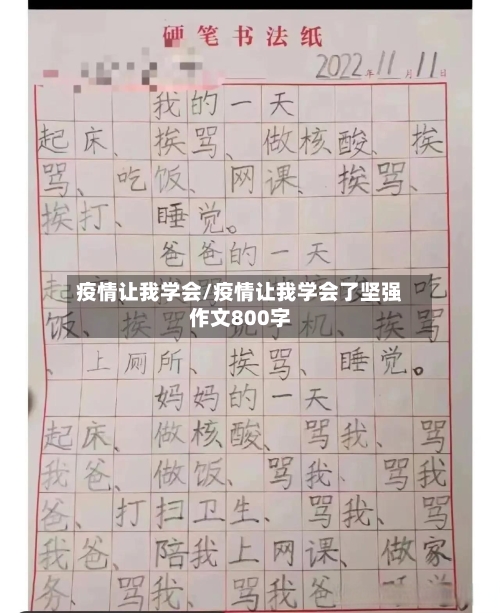 硬笔书法纸
2022年11月11日
我的一天
起床、挨骂、做核酸、挨
骂、吃饭、网课、挨骂、
挨打、睡觉。
爸爸的一天
吃
疫情让我学会/疫情让我学会了坚强
作文800字
饭、挨骂、玩手机、挨骂
、上厕所、挨骂、睡觉。
妈妈的一天
起床、做核酸、骂我、骂
我爸、做饭、骂我、骂我
爸、打扫卫生、骂我、骂
我爸、陪我上网课、做家
务、骂我、骂我爸